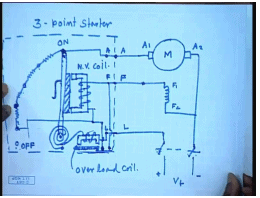 3-point Starter
ON
A A A1 M A2
N.V. Coil.
F F F1
F2
L
OFF
over load coil.
+ -